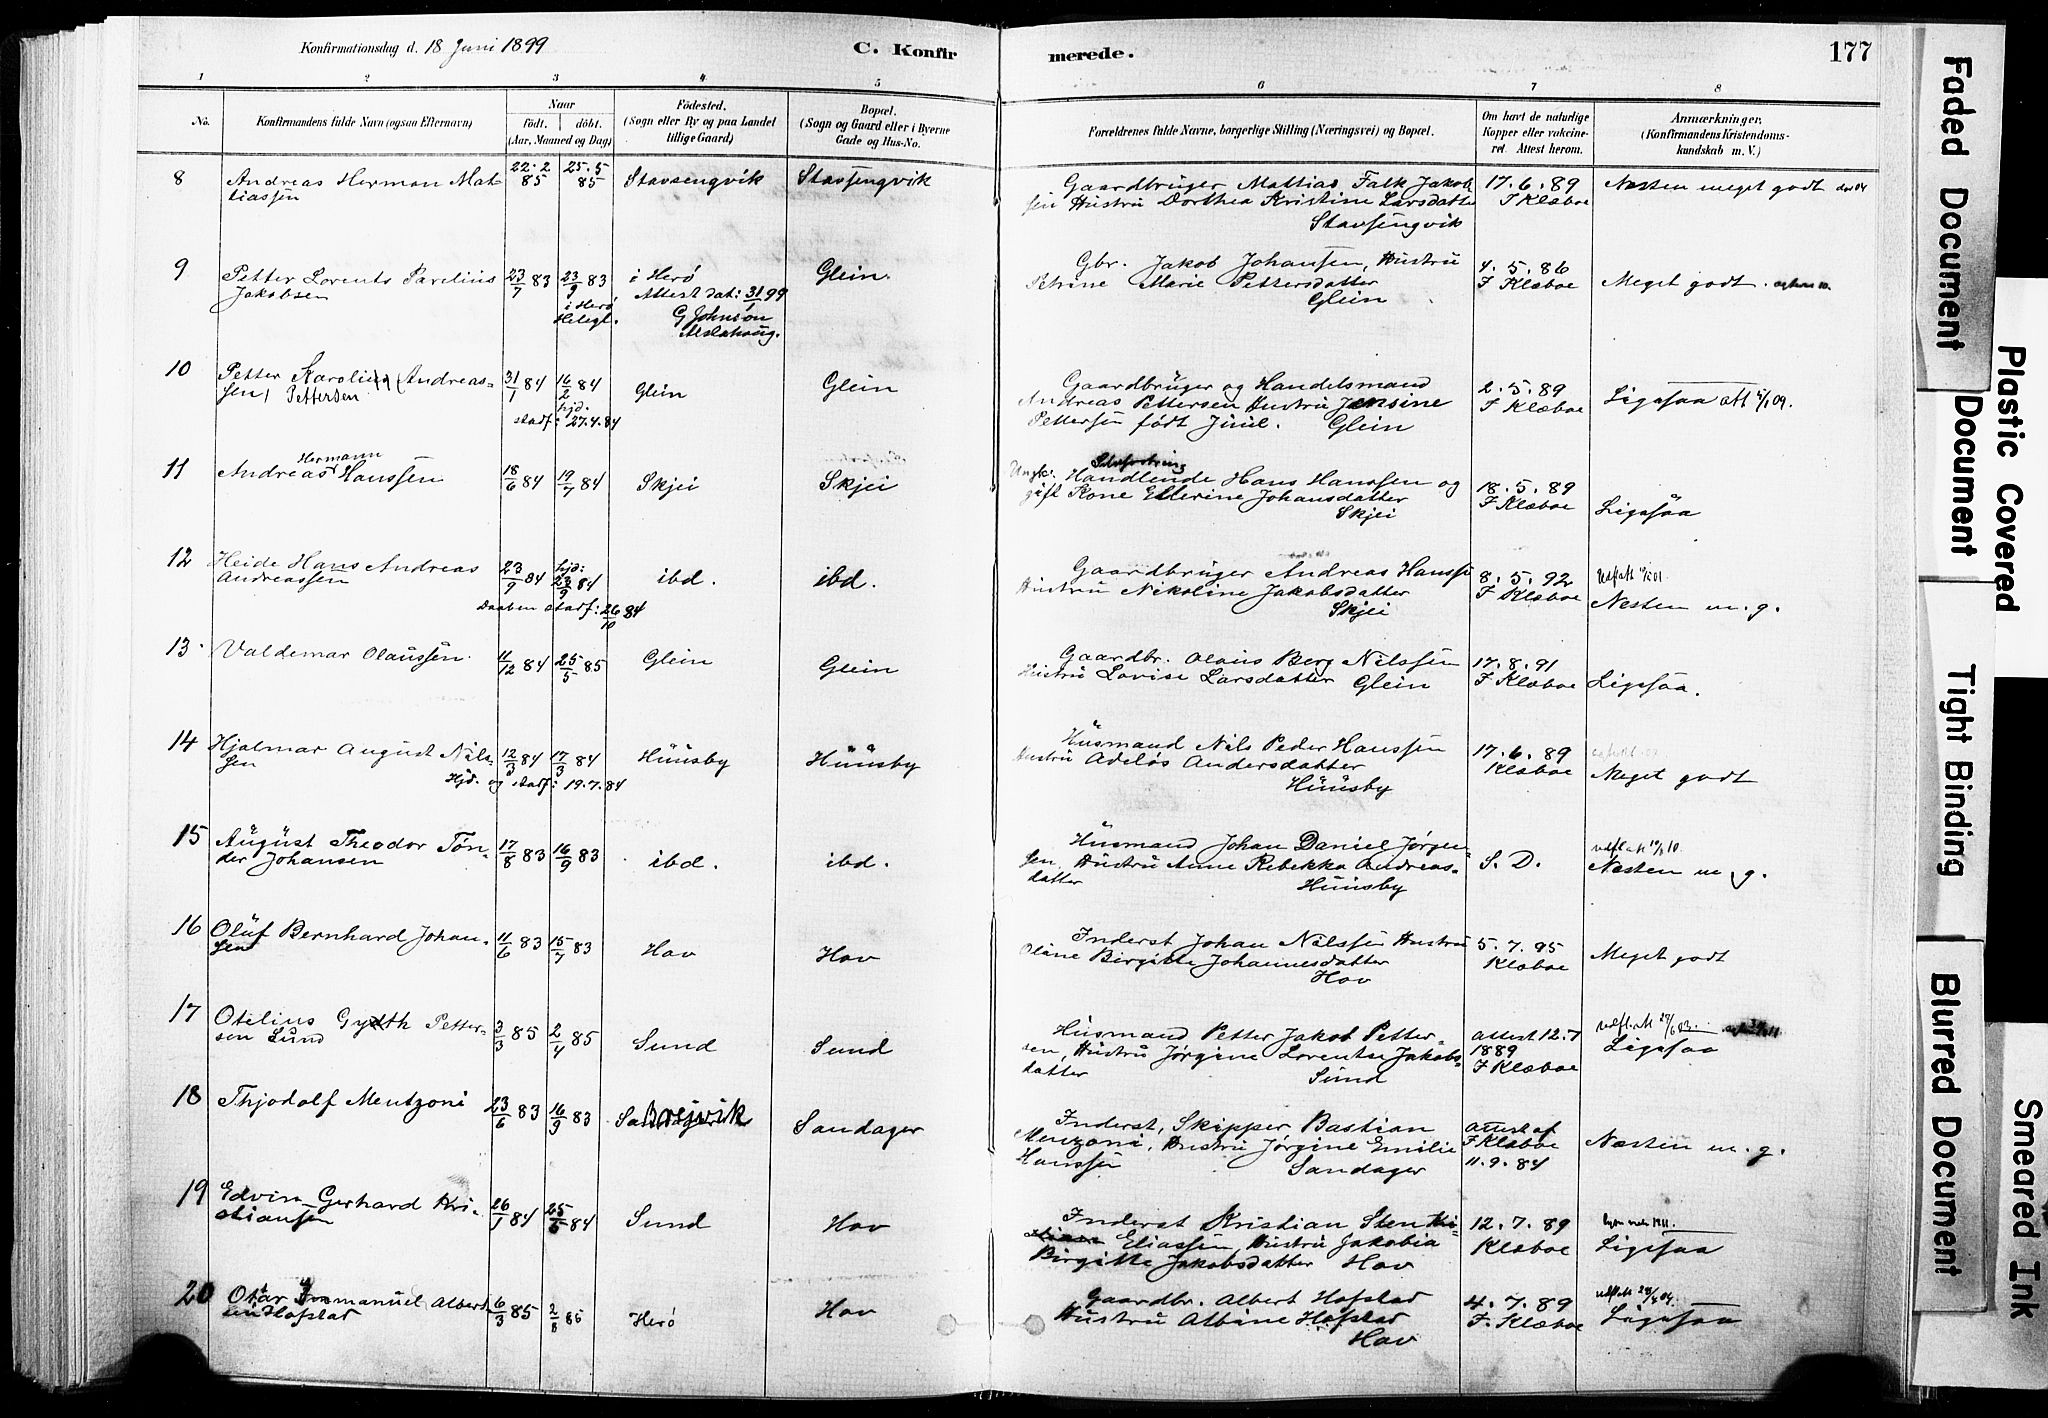 Konfirmationsdag d. 18 Juni 1899
C. Konfir merede. 177
1 2 3 4 5 6 7 8
No. Konfirmandens fulde Navn (ogsaa Efternavn)
Naar
født. døbt.
(Aar, Maaned og Dag)
Fødested.
(Sogn eller By og paa Landet
tillige Gaard)
Bopæl.
(Sogn og Gaard eller i Byerne
Gade og Hus-No.
Forældrenes fulde Navne, borgerlige Stilling (Næringsvei) og Bopæl.
Om havt de naturlige
Kopper eller vakcine-
ret. Attest herom.
Anmærkninger.
(Konfirmandens Kristendoms-
kundskab m. V.)
8 Andreas Herman Mat
tiassen
22.2 85 25.5 85
Stavsengvik Stavsengvik
Gaardbruger Mattias Falk Jakob
sen Hustru Dorthea Kristine Larsdatter
Stavsengvik
17.6.89
F Klæboe
Næsten meget godt
9 Petter Lorents Parelius
Jakobsen
23/7 83 23/9 83
i Herø
Helegl.
i Herø
Attest dat: 31/1 99
G Johnson
Alstahoug.
Glein.
Gbr. Jakob Johansen, Hustru
Petrine Marie Pettersdatter
Glein
4.5.86
F Klæboe
Meget godt.
10 Petter Karolius (Andreas-
sen) Pettersen
31/1 84 16/2 84
hjd.
stadf: 27.4.84
Glein Glein
Gaardbrüger og Handelsmand
Andreas Pettersen Hustru Jensine
Pettersen født Juul. Glein
2.5.89
F Klæboe
Ligesaa
11 Andreas Hermann Hanssen
18/6 84 19/7 84
Skjei Skjei
Ungk: Handlende Hans Hanssen og
gift Kone Ellerine Johansdatter
Skjei
18.5.89
F Klæboe
Ligesaa
12 Heide Hans Andreas
Andreassen
23/9 84 hjd: 23/9 84
Daaben stadf: 26/10 84
ibd. ibd.
Gaardbrüger Andreas Hanss
Hustru Nikoline Jakobsdatter
Skjei
8.5.92
F Klæboe
Næsten m. g.
13 Valdemar Olaussen
11/12 84 25/5 85
Glein Glein
Gaardbr. Olaus Berg Nilssen
Hustru Lovise Larsdatter Glein
17.8.91
F Klæboe
Ligesaa.
14 Hjalmar August Nils-
sen
12/3 84 17/3 84
Hjd. og stadf: 19.7.84
Huusby Huusby
Husmand Nils Peder Hanssen
Hustru Adeløs Andersdatter
Huusby
17.6.89
Klæboe
Meget godt
15 August Theodor Tøn-
der Johansen
17/8 83 16/9 83
ibd. ibd.
Husmand Johan Daniel Jørgen-
sen, Hustru Anne Rebekka Andreas-
datter Huusby
S. D.
Næsten m. g.
16 Oluf Bernhard Johan-
sen
11/6 83 15/7 83
Hov Hov
Inderst Johan Nilssen Hustru
Olüne Birgitte Johannesdatter
Hov
5.7.95
Klæboe
Meget godt
17 Otelius Gyth Petter-
sen Lund
3/3 85 2/4 85
Sund Sund
Husmand Petter Jakob Petter-
sen, Hustru Jørgine Lorentse Jakobs-
datter Sund
attest 12.7
1889
F Klæboe
Ligesaa
18 Thjodolf Mentzoni
23/6 83 16/9 83
Breivik Sandager
Inderst, Skipper Bastian
Menzoni, Hustru Jørgine Emilie
Hanssen Sandager
attest af
F Klæboe
11.9.84
Næsten m. g.
19 Edvin Gerhard Kri-
stiansen
26/1 84 25/5 84
Sund Hov
Inderst Kristian Sten
Eliassen, Hustru Jakobia
Birgitte Jakobsdatter Hov
12.7.89
Klæboe
Ligesaa
20 Otar Immanuel Albert
sen Hofstad
6/3 85 2/8 85
Herø Hov
Gaardbr. Albert Hofstad
Hustru Albine Hofstad
Hov
4.7.89
F. Klæboe
Ligesaa
Faded Document
Plastic Covered Document
Tight Binding
Blurred Document
Smeared Ink